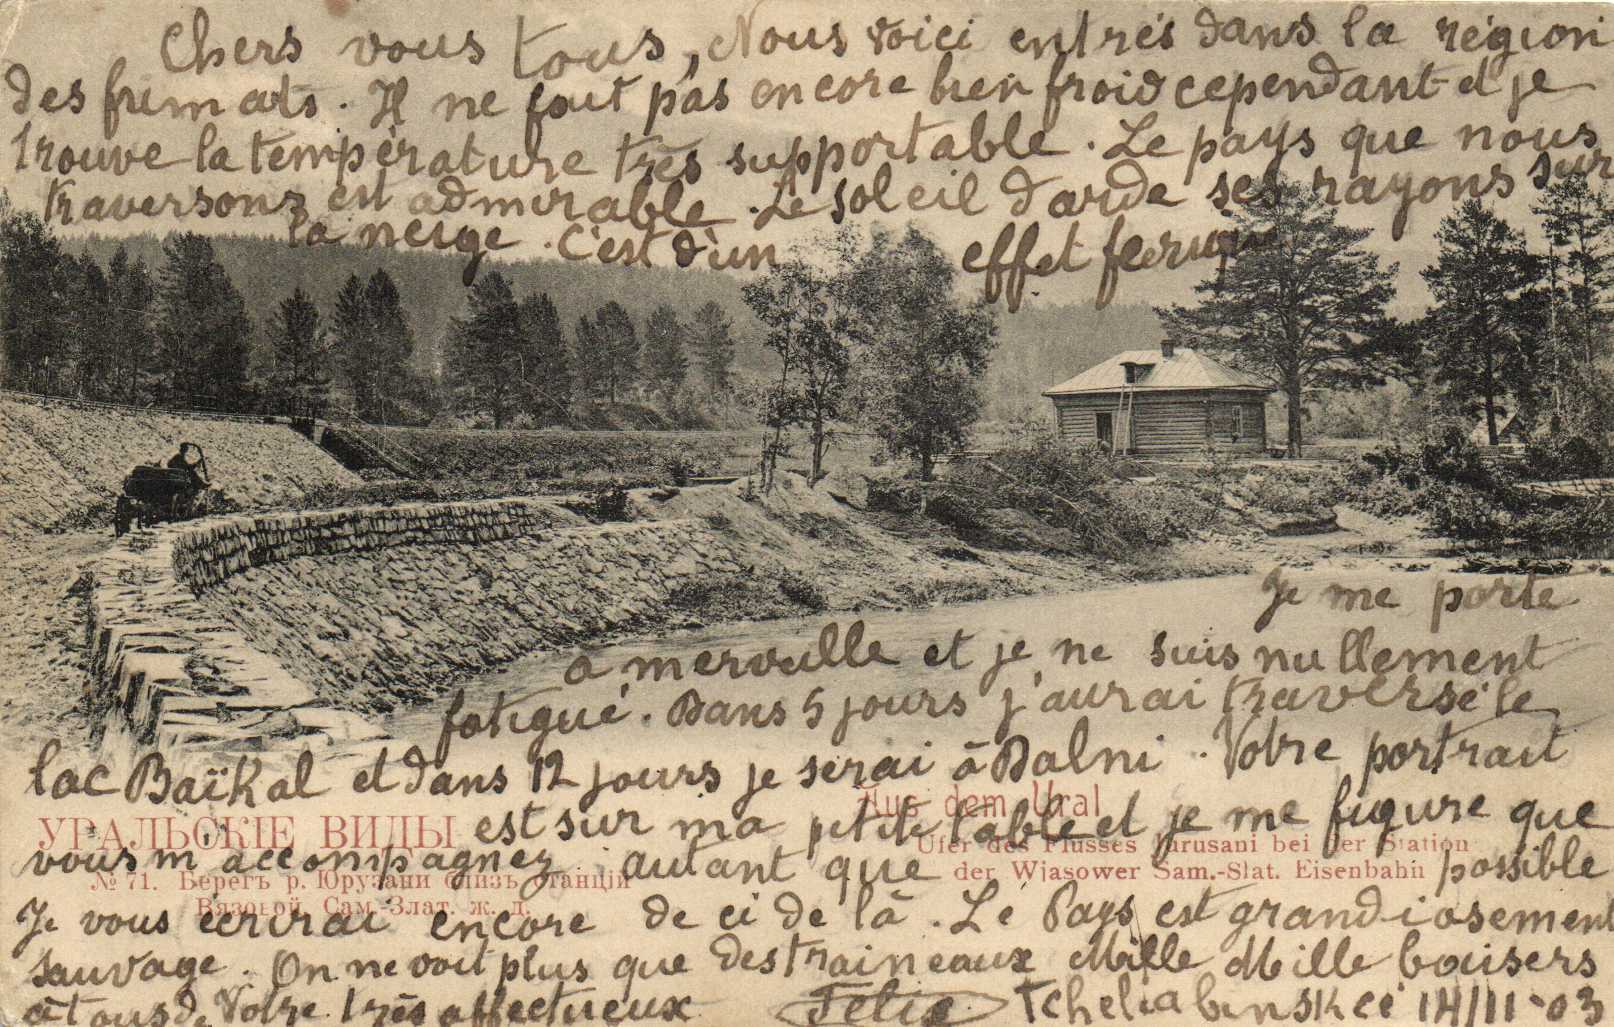 Chers vous tous, Nous voici entrés dans la région
des frimats. Il ne fait pas encore bien froid cependant et je
trouve la température très supportable. Le pays que nous
traversons est admirable. Le soleil darde ses rayons sur
la neige. C'est d'un effet feerique
Je me porte
a merveille et je ne suis nullement
fatigué. Dans 5 jours j'aurai traversé le
lac Baïkal et dans 12 jours je serai à Dalni. Votre portrait
est sur ma petite table et je me figure que
vous m'accompagnez autant que possible
Je vous ecrirai encore de ci de là. Le Pays est grandiosement
sauvage. On ne voit plus que des traineaux Mille Mille baisers
à tous de Votre très affectueux Félix Tcheliabinsk ce 14/11-03
УРАЛЬСКІЕ ВИДЫ
№ 71. Берегъ р. Юрузани близъ станціи
Вязовой Сам.-Злат. ж. д.
Aus dem Ural
Ufer des Flusses Jurusani bei der Station
der Wjasower Sam.-Slat. Eisenbahn